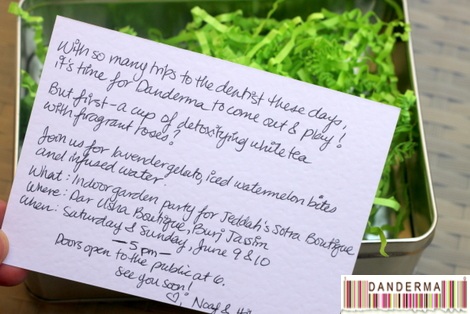 With so many trips to the dentist these days,
it's time for Danderma to come out & play!
But first - a cup of detoxifying white tea
with fragrant roses?
Join us for lavender gelato, iced watermelon bites
and infused water.
What: Indoor garden party for Jeddah's Sotra Boutique
Where: Dar Usha Boutique, Burj Jassim
When: Saturday & Sunday, June 9 & 10
— 5 pm —
Doors open to the public at 6.
See you soon!
♡, Noaf &
DANDERMA